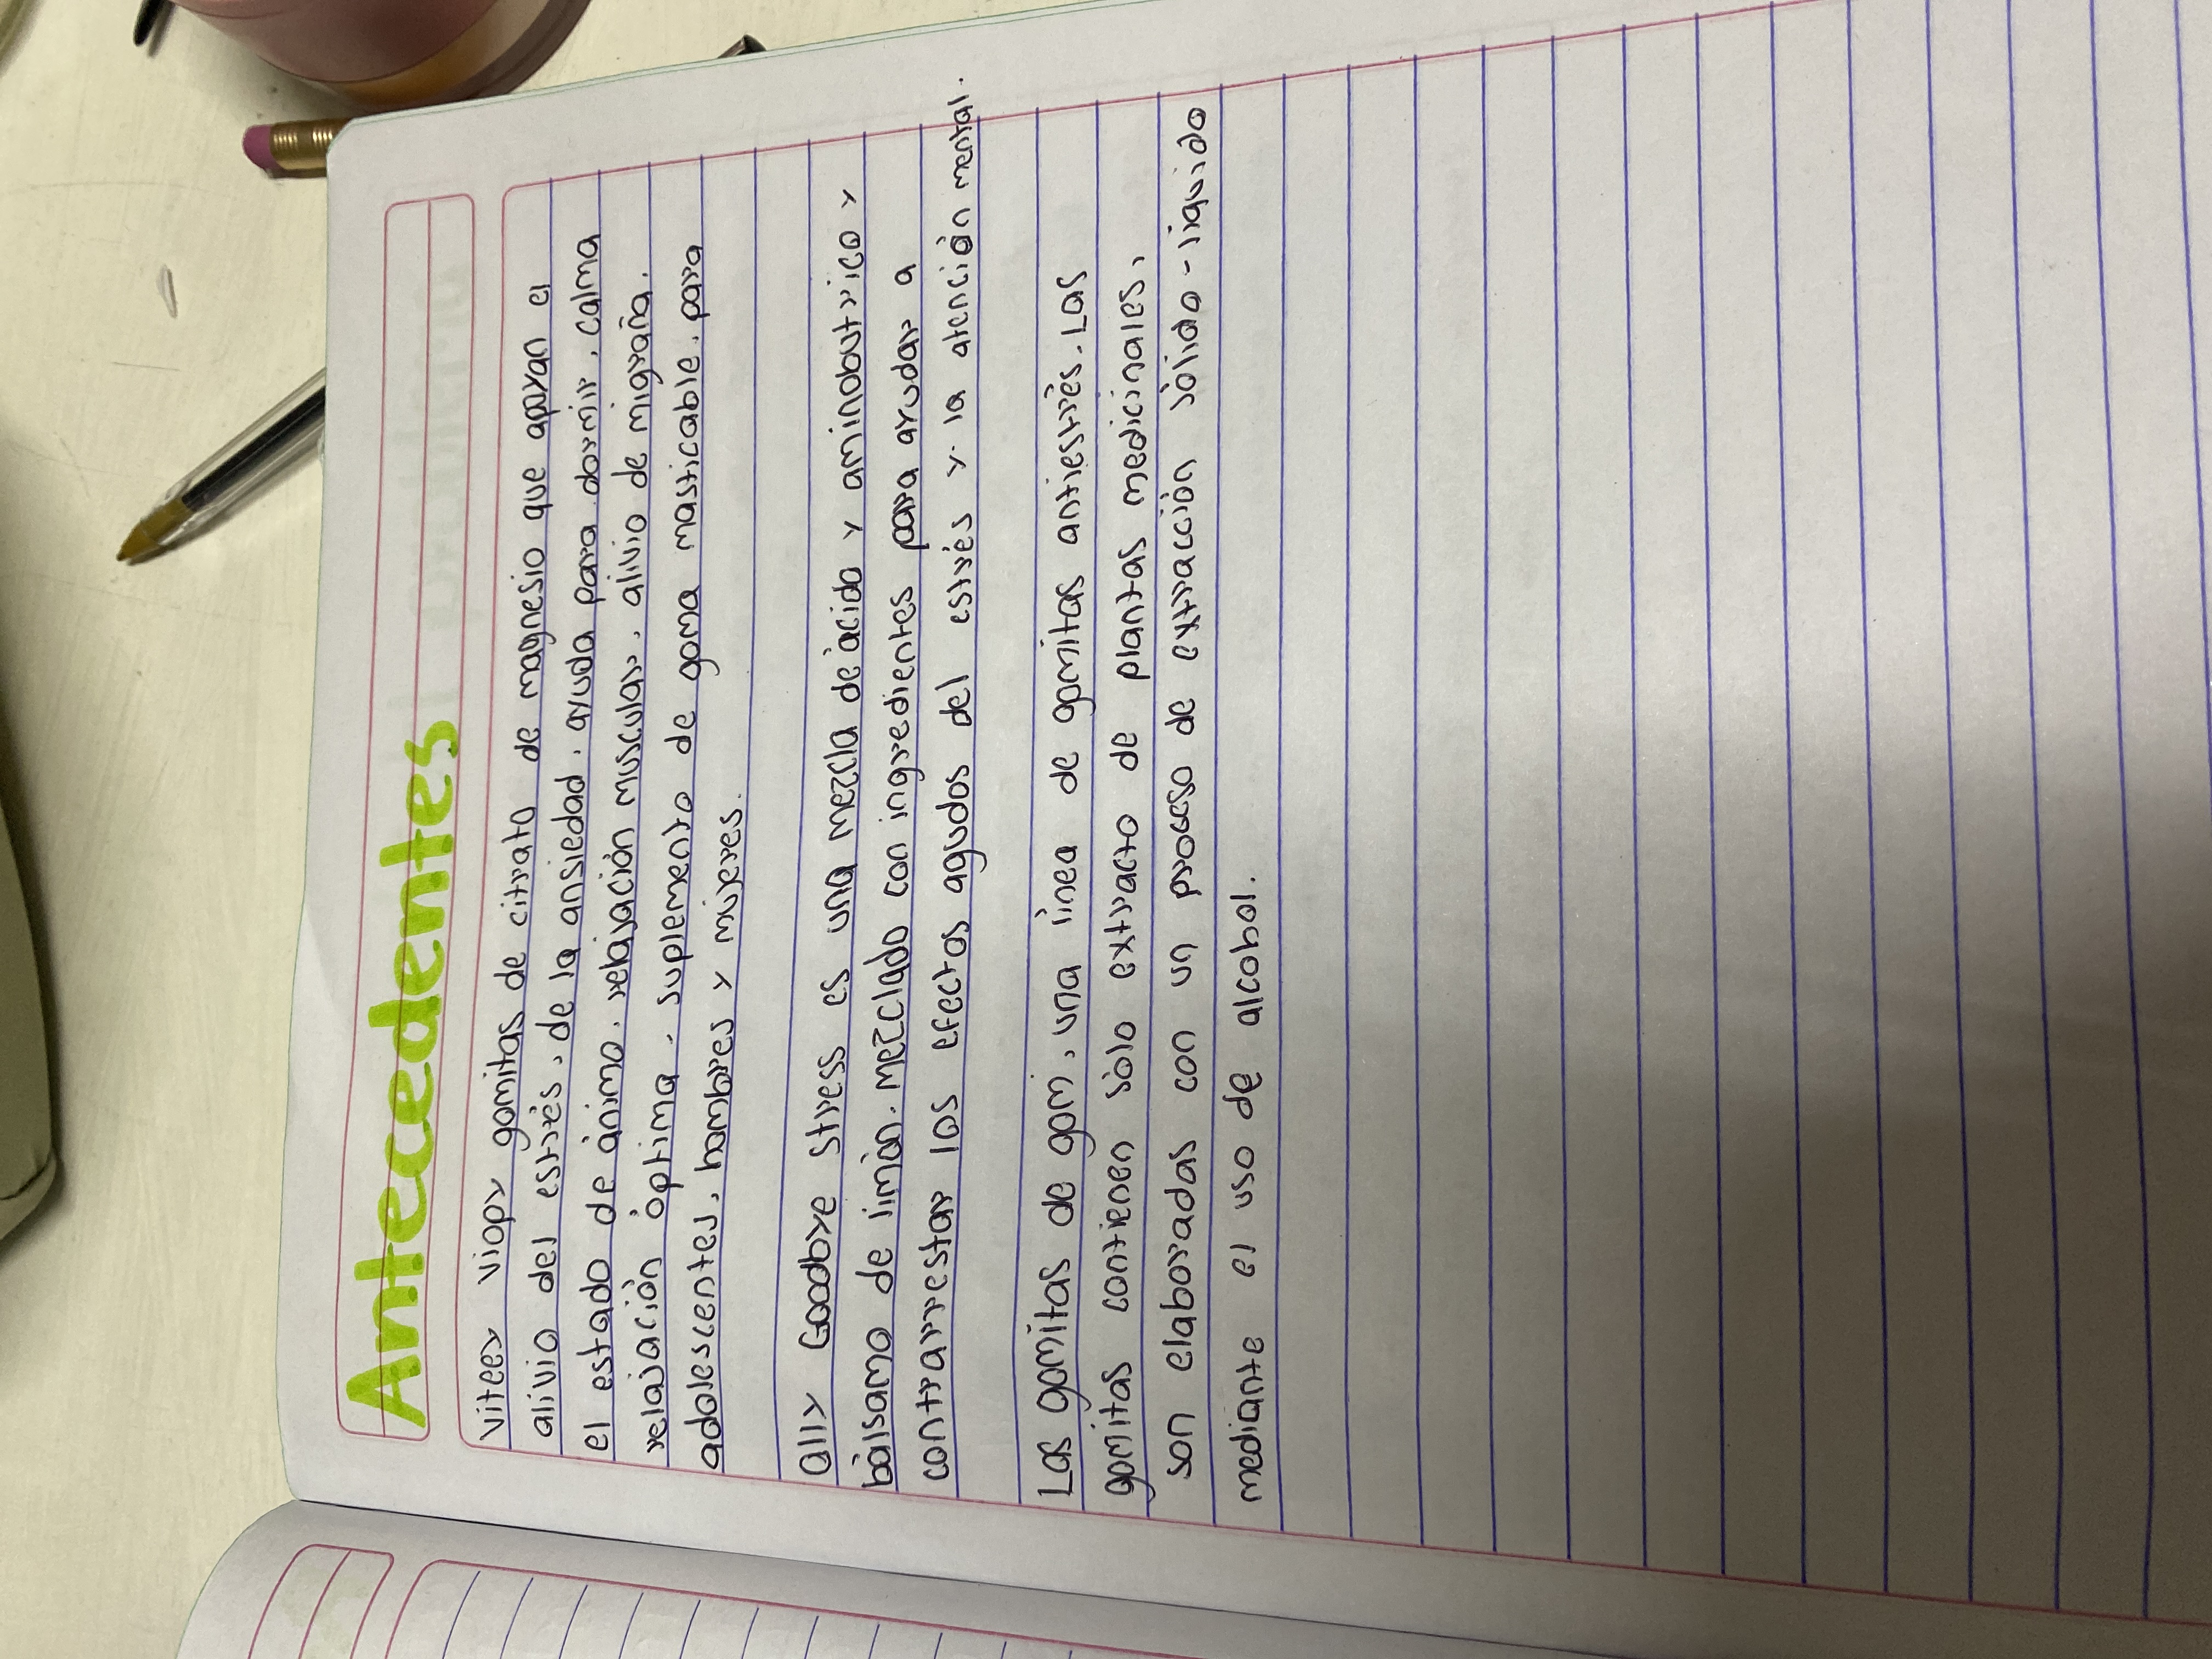 Antecedentes
viteey viopy gomitas de citrato de magnesio que apoyan el
alivio del estrés, de la ansiedad, ayuda para dormir, calma
el estado de ánimo, relajación muscular, alivio de migraña.
relajación óptima, suplemento de goma masticable, para
adolescentes, hombres y mujeres.
Olly Goodbye Stress es una mezcla de ácido y aminobutírico y
bálsamo de limón. Mezclado con ingredientes para ayudar a
contrarrestar los efectos agudos del estrés y la atención mental.
Las gomitas de gom, una línea de gomitas antiestrés. Las
gomitas contienen sólo extracto de plantas medicinales,
son elaboradas con un proceso de extracción sólido-líquido
mediante el uso de alcohol.